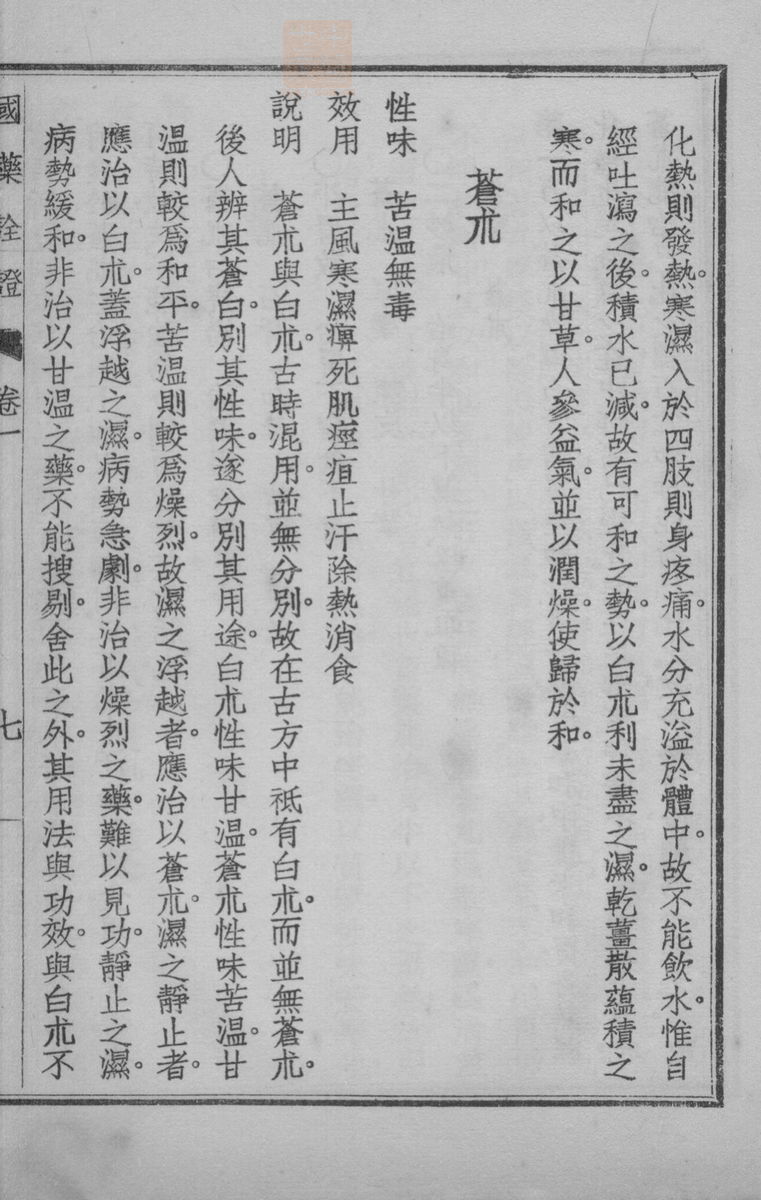 化熱則發熱。寒濕入於四肢則身疼痛。水分充溢於體中。故不能飲水。惟自
經吐瀉之後。積水已減。故有可和之勢。以白朮利未盡之濕。乾薑散蘊積之
寒。而和之以甘草。人參益氣。並以潤燥。使歸於和。
蒼朮
性味　苦溫無毒
效用　主風寒濕痺死肌痙疸止汗除熱消食
說明　蒼朮與白朮。古時混用。並無分別。故在古方中祇有白朮。而並無蒼朮。
後人辨其蒼白。別其性味。遂分別其用途。白朮性味甘溫。蒼朮性味苦溫。甘
溫則較爲和平。苦溫則較爲燥烈。故濕之浮越者。應治以蒼朮。濕之靜止者。
應治以白朮。蓋浮越之濕。病勢急劇。非治以燥烈之藥。難以見功。靜止之濕。
病勢緩和。非治以甘溫之藥。不能搜剔。舍此之外。其用法與功效。與白朮不
國藥詮證　卷一　七